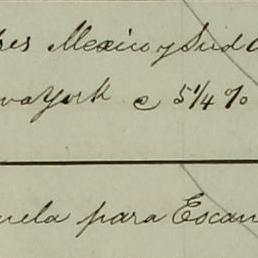 res Mexico y Sud A
va York @ 5 1/4 %
uela para Escan